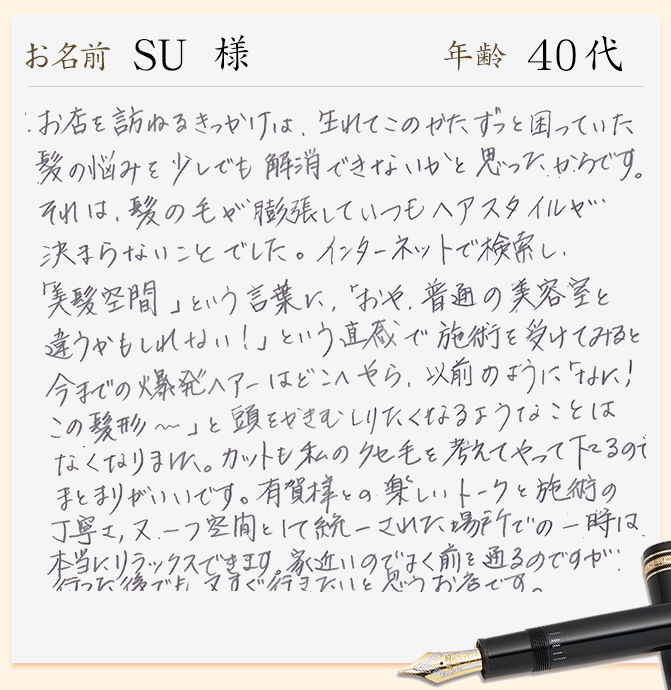 お名前 SU 様 年齢 40代
お店を訪ねるきっかけは、生れてこのかたずっと困っていた
髪の悩みを少しでも解消できないかと思ったからです。
それは、髪の毛が膨張していつもヘアスタイルが
決まらないことでした。インターネットで検索し、
「美髪空間」という言葉に、「おや、普通の美容室と
違うかもしれない!」という直感で施術を受けてみると
今までの爆発ヘアーはどこへやら、以前のように「なに!
この髪形〜」と頭をかきむしりたくなるようなことは
なくなりました。カットも私のクセ毛を考えてやって下さるので
まとまりがいいです。有賀様との楽しいトークと施術の
丁寧さ、又、一つ空間として統一された場所での一時は、
本当にリラックスできます。家近いのでよく前を通るのですが、
行った後でも、又すぐ行きたいと思うお店です。